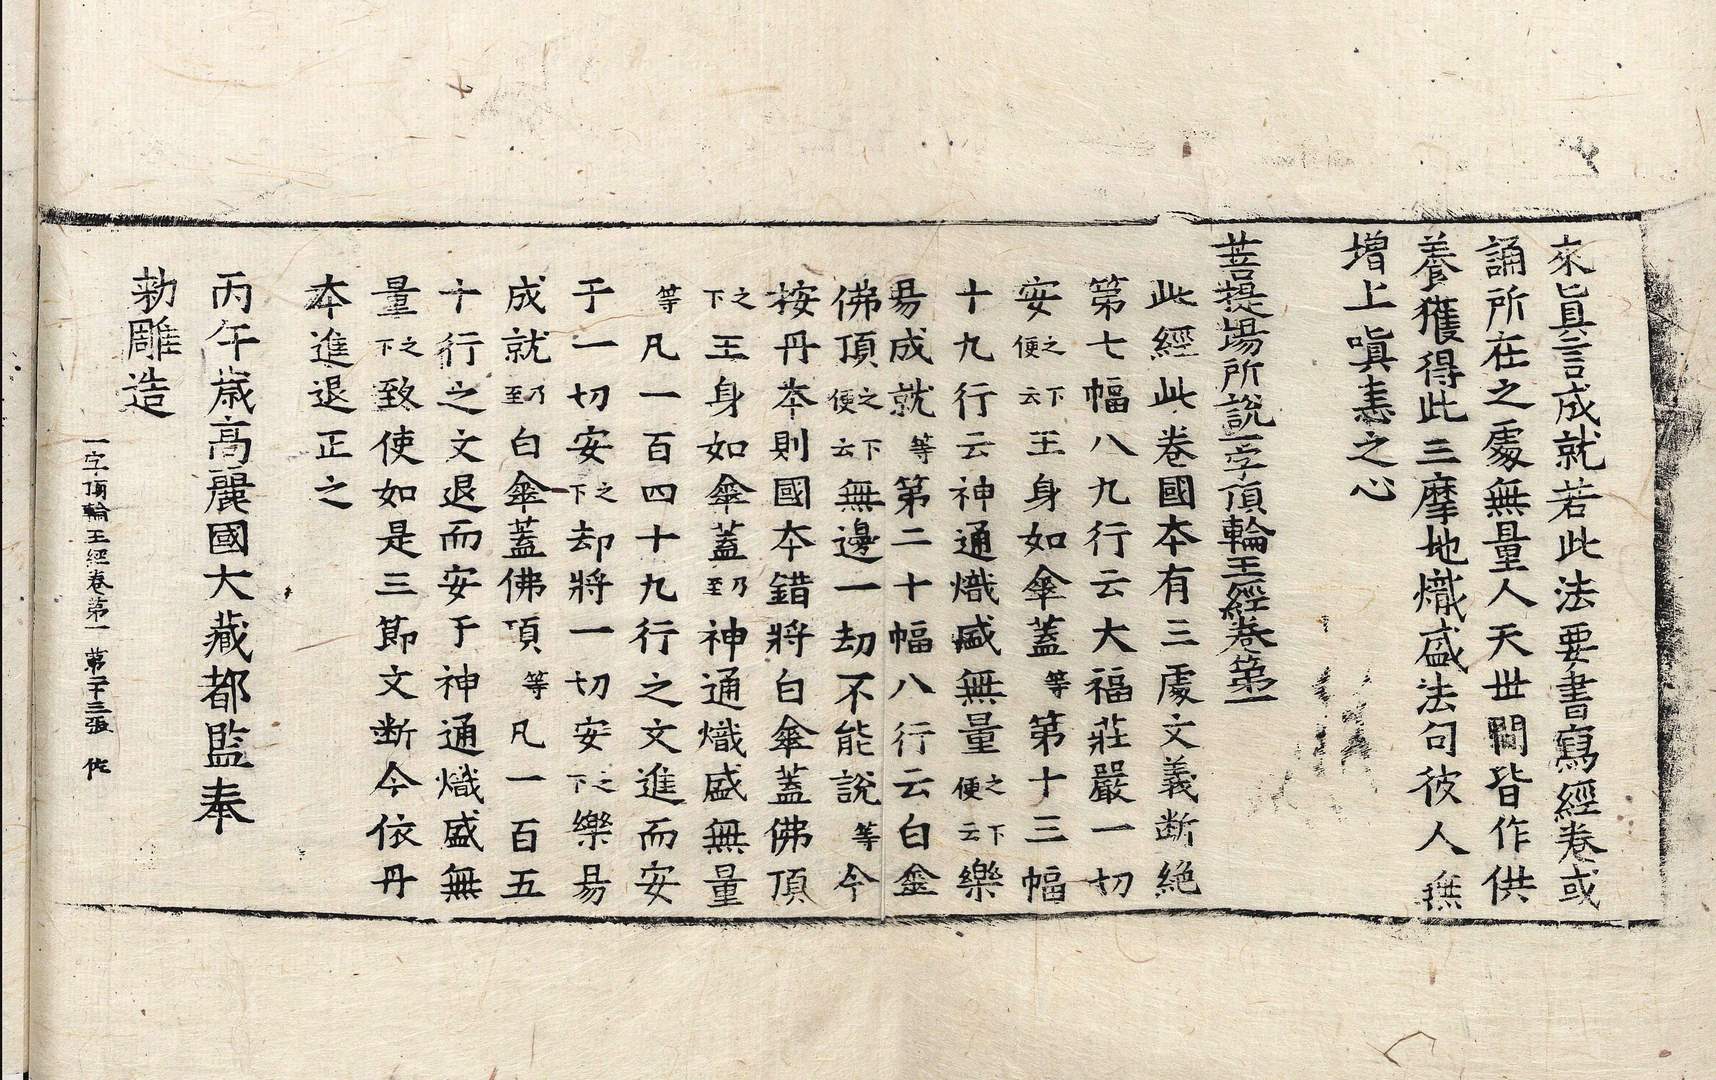 來眞言成就若此法要書寫經卷或
誦所在之處無量人天世間皆作供
養獲得此三摩地熾盛法句彼人無
增上嗔恚之心
菩提場所說一字頂輪王經卷第一
此經此卷國本有三處文義斷絶
第七幅八九行云大福莊嚴一切
安之下便云王身如傘蓋等第十三幅
十九行云神通熾盛無量之下便云樂
易成就等第二十幅八行云白傘蓋
佛頂之下便云無邊一劫不能說等今
按丹本則國本錯將白傘蓋佛頂
之下王身如傘蓋乃至神通熾盛無量
等凡一百四十九行之文進而安
于一切安之下却將一切安之下樂易
成就乃至白傘蓋佛頂等凡一百五
十行之文退而安于神通熾盛無
量之下致使如是三節文斷今依丹
本進退正之
丙午歲高麗國大藏都監奉
勅雕造
一字頂輪王經卷第一 第二十三張 佐